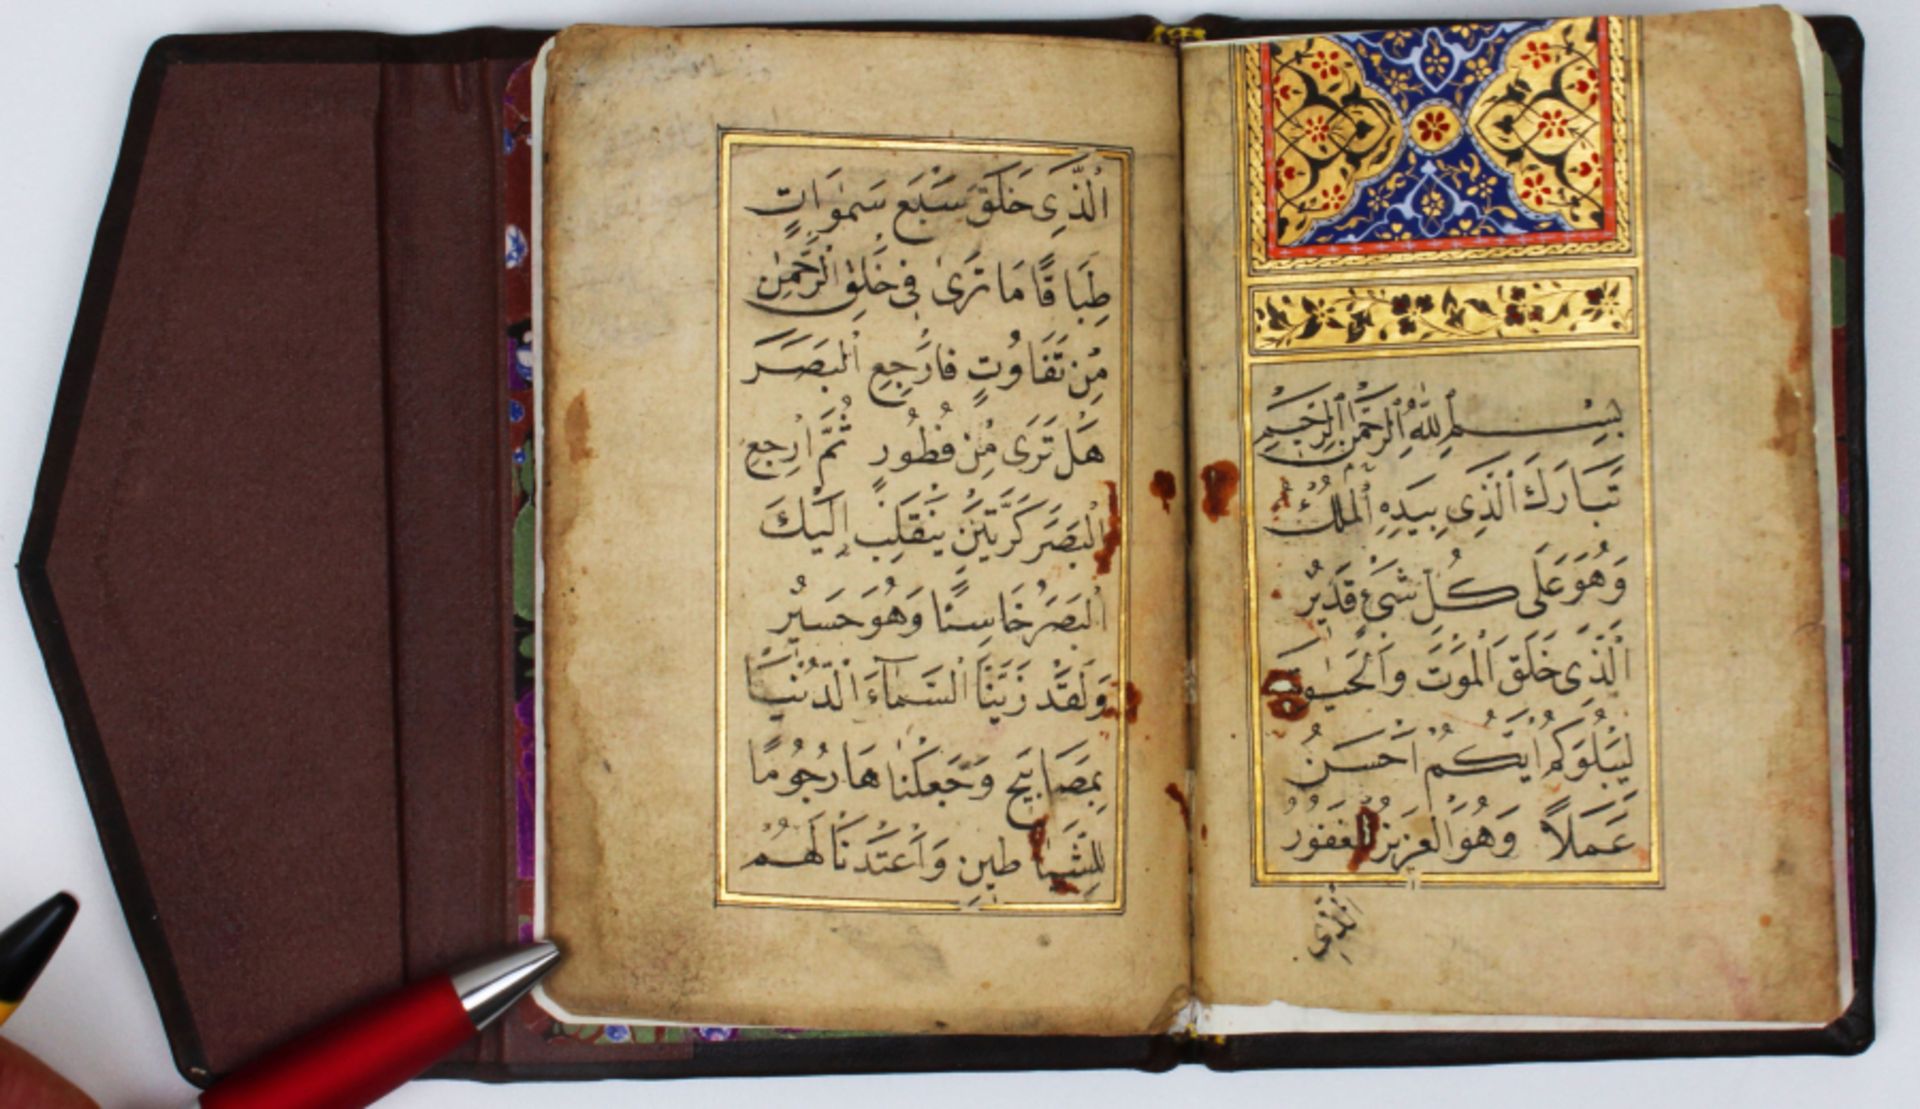 بِسْمِ ٱللّٰهِ ٱلرَّحْمٰنِ ٱلرَّحِيمِ
تَبَارَكَ ٱلَّذِى بِيَدِهِ ٱلْمُلْكُ
وَهُوَ عَلَى كُلِّ شَىْءٍ قَدِيرٌ
ٱلَّذِى خَلَقَ ٱلْمَوْتَ وَٱلْحَيٰوةَ
لِيَبْلُوَكُمْ أَيُّكُمْ أَحْسَنُ
عَمَلاً وَهُوَ ٱلْعَزِيزُ ٱلْغَفُورُ
ٱلَّذِى
ٱلَّذِى خَلَقَ سَبْعَ سَمٰوَاتٍ
طِبَاقًا مَا تَرَىٰ فِى خَلْقِ ٱلرَّحْمٰنِ
مِنْ تَفَاوُتٍ فَارْجِعِ ٱلْبَصَرَ
هَلْ تَرَى مِنْ فُطُورٍ ثُمَّ ٱرْجِعِ
ٱلْبَصَرَ كَرَّتَيْنِ يَنْقَلِبْ إِلَيْكَ
ٱلْبَصَرُ خَاسِئًا وَهُوَ حَسِيرٌ
وَلَقَدْ زَيَّنَّا ٱلسَّمَآءَ ٱلدُّنْيَا
بِمَصَابِيحَ وَجَعَلْنٰا هَا رُجُومًا
لِلشَّيَا طِينِ وَأَعْتَدْنَا لَهُمْ